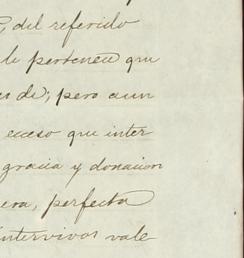 , del referido
le pertenece que
es de; pero aun
exceso que inter
gracia y donacion
era, perfecta
intervivos vale